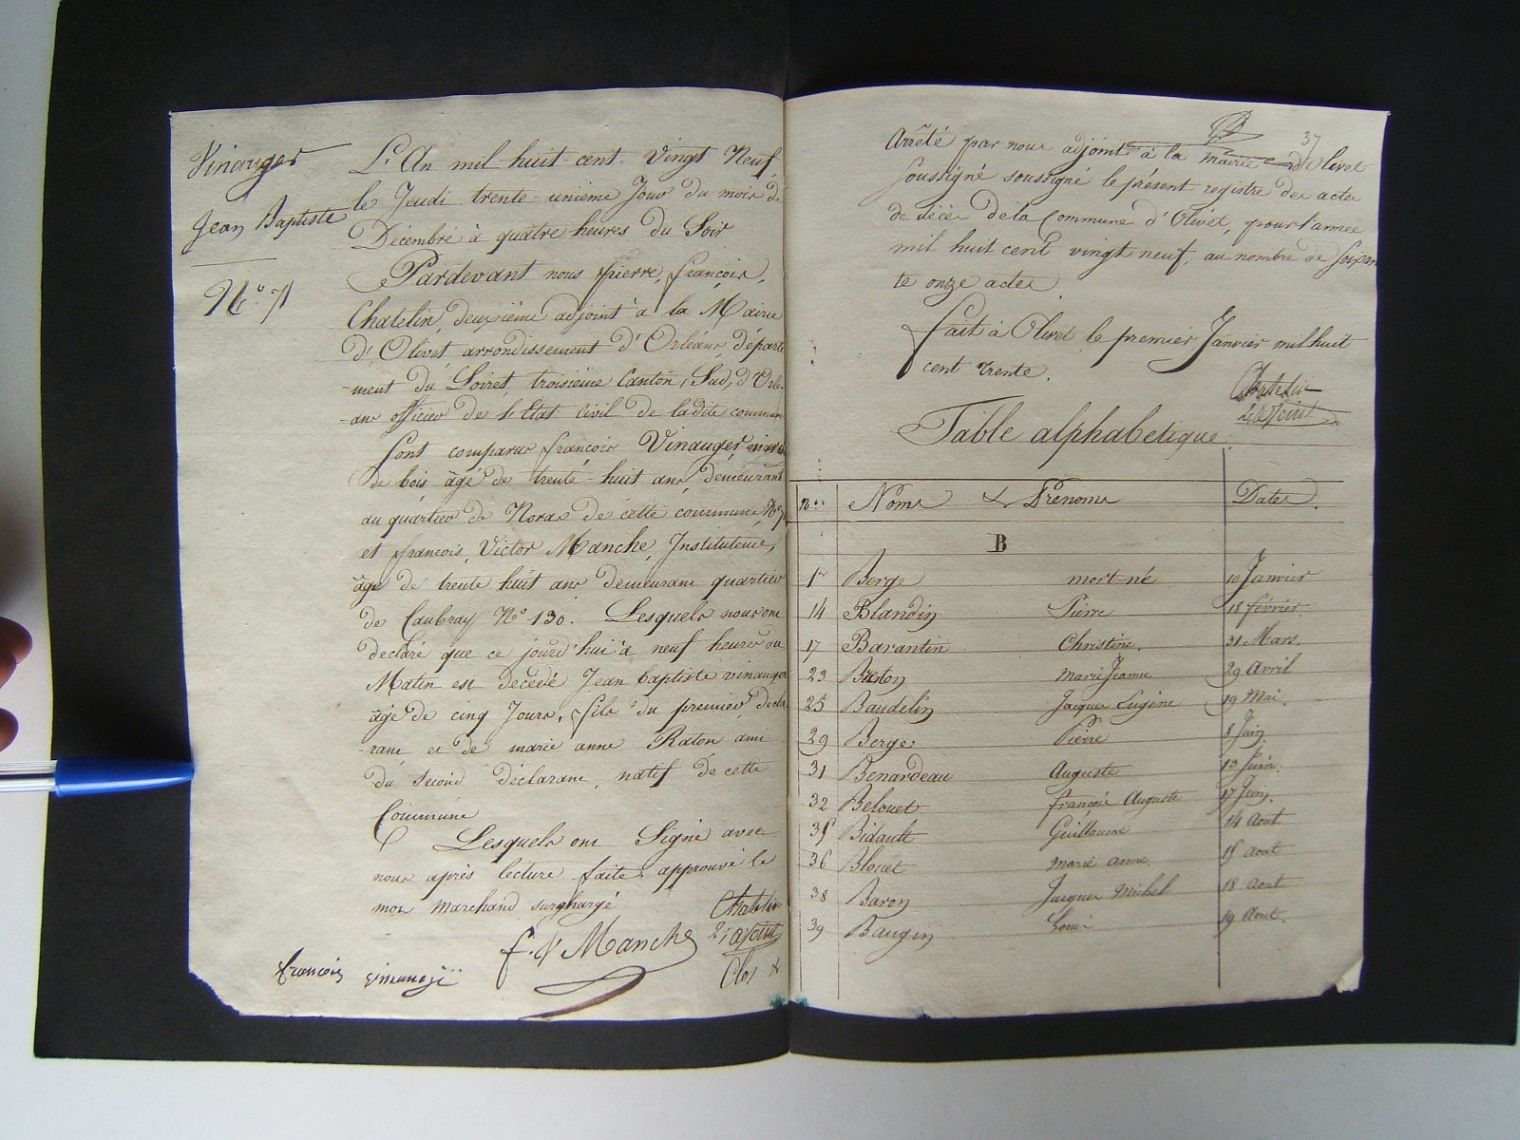 Vinauger
Jean Baptiste
N.° 71
L'An mil huit cent Vingt Neuf
le Jeudi trente unième Jour du mois de
Décembre à quatre heures du Soir
Pardevant nous pierre, françois,
Chatelin, deuxième adjoint à la Mairie
d'Olivet arrondissement d'Orléans, départe
-ment du Loiret, troisième Canton, Sud, d'Orle-
-ans officier de l'Etat Civil de ladite commune
Sont comparus françois Vinauger
de bois âgé de trente-huit ans, demeurant
au quartier de Noras de cette commune
et françois, Victor Manche, Instituteur,
âgé de trente huit ans demeurant quartier
de Caubray N° 130. Lesquels nous ont
déclaré que ce jourd'hui à neuf heures du
Matin est décédé Jean baptiste vinauger
âgé de cinq Jours, fils du premier décla
-rant et de marie anne Raton ami
du second déclarant, natif de cette
Commune
Lesquels ont Signé avec
nous après lecture faite, approuvé le
mot Marchand surchargé
Chatelin
2, adjoint
f. V Manche
françois
37
Arrêté par nous adjoint à la mairie d'Olivet
soussigné soussigné le présent registre des actes
de décès dela Commune d'Olivet, pour l'année
mil huit cent vingt neuf, au nombre de Soixan
te onze actes
fait à Olivet le premier Janvier mil huit
cent trente.
Chatelin
2, adjoint
Table alphabetique
N.os Noms & Prénoms Dates.
B
1er Berge mort né 10 Janvier
14 Blandin Pierre 18 février.
17 Barantin Christine. 31 Mars.
23 Baston marie Jeanne 29 Avril
25 Baudelin Jacques Eugène 19 Mai.
29 Berge Pierre 8 Juin
31 Benardeau Auguste 13 Juin.
32 Belouet françois Auguste 17 Juin.
35 Bidault Guillaume 14 Aout
36 Blouet marie anne. 15 aout
38 Baron Jacques Michel 18 aout
39 Baugin Louis 19 Aout.